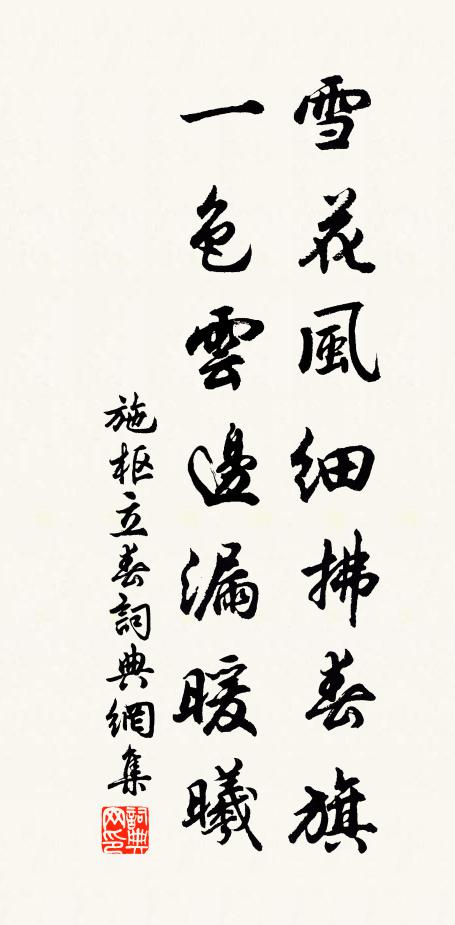 雪花風細拂春旗
一色雲邊漏暖曦
施枢立春詞典網集
詞典网印